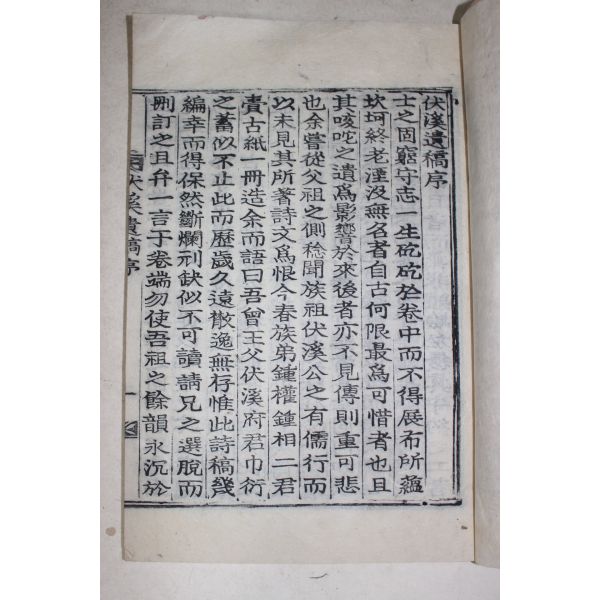 伏溪遺稿序
士之固窮守志一生矻矻於卷中而不得展布所蘊
坎坷終老湮没無名者自古何限最爲可惜者也且
其咳唾之遺爲影響於來後者亦不見傳則重可悲
也余嘗從父祖之側稔聞族祖伏溪公之有儒行而
以未見其所著詩文爲恨今春族弟鍾權鍾相二君
賷古紙一冊造余而語曰吾曾王父伏溪府君巾衍
之蓄似不止此而歷歲久遠散逸無存惟此詩稿幾
編幸而得保然斷爛刓缺似不可讀請兄之選脫而
刪訂之且弁一言于卷端勿使吾祖之餘韻永沉於
伏溪遺稿序
一